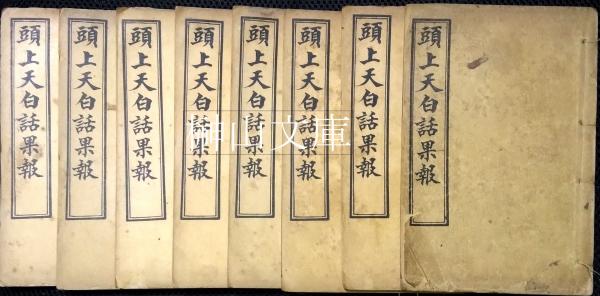 頭上天白話果報
頭上天白話果報
頭上天白話果報
頭上天白話果報
頭上天白話果報
頭上天白話果報
頭上天白話果報
頭上天白話果報
榊山文庫